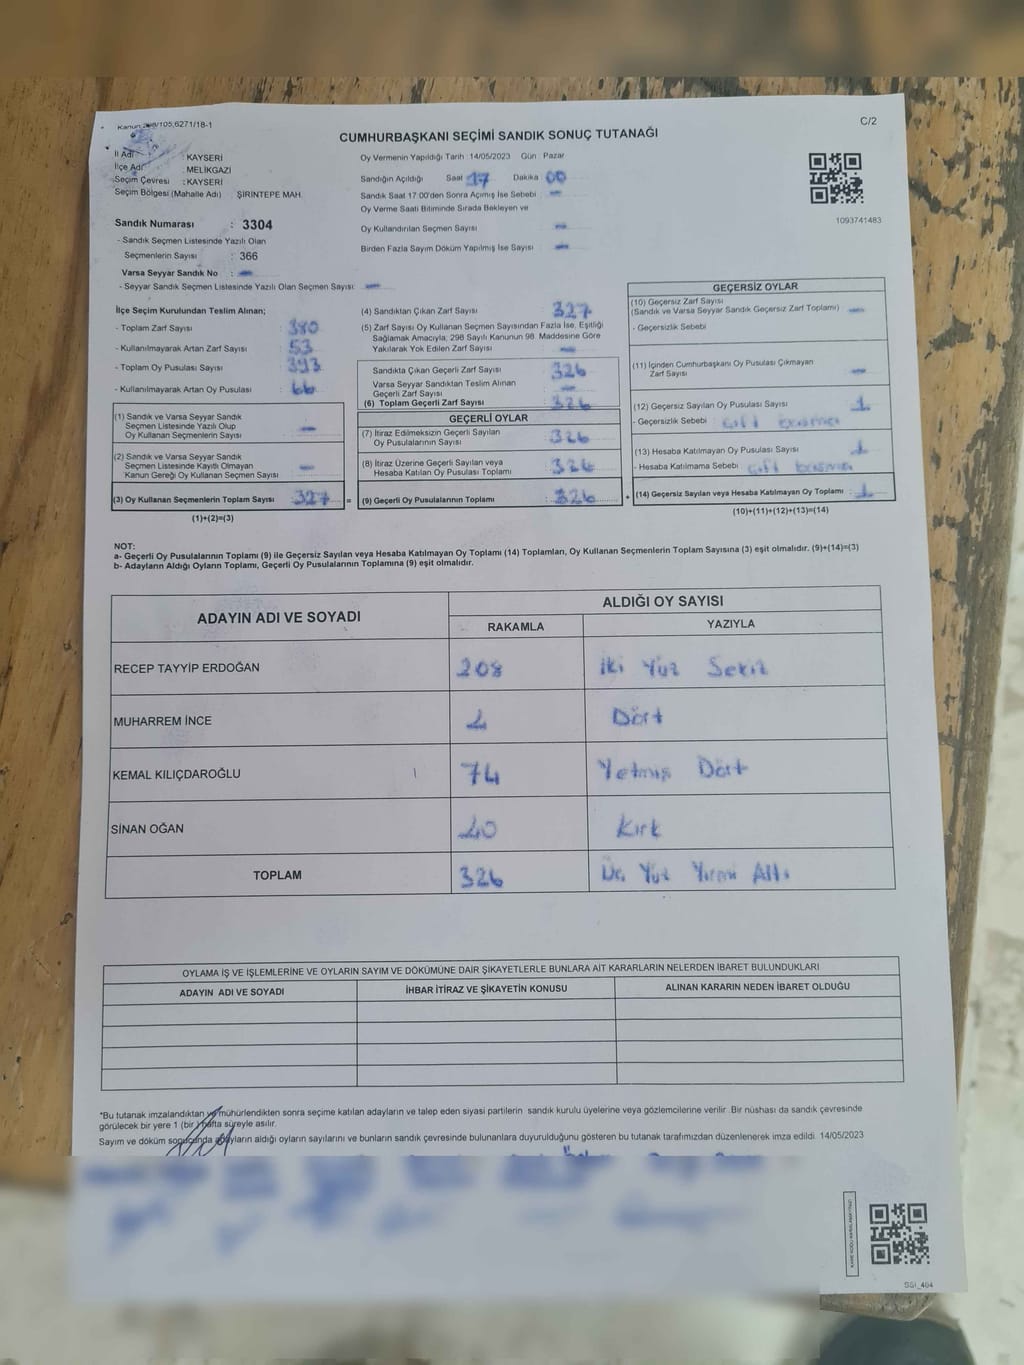 C/2
CUMHURBAŞKANI SEÇİMİ SANDIK SONUÇ TUTANAĞI
İl Adı : KAYSERİ
İlçe Adı : MELİKGAZİ
Seçim Çevresi : KAYSERİ
Seçim Bölgesi (Mahalle Adı) ŞİRİNTEPE MAH.
Sandık Numarası : 3304
- Sandık Seçmen Listesinde Yazılı Olan
Seçmenlerin Sayısı : 366
Varsa Seyyar Sandık No : -
- Seyyar Sandık Seçmen Listesinde Yazılı Olan Seçmen Sayısı: -
Oy Vermenin Yapıldığı Tarih 14/05/2023 Gün Pazar
Sandığın Açıldığı Saat 17 Dakika 00
Sandık Saat 17:00'den Sonra Açılmış İse Sebebi -
Oy Verme Saati Bitiminde Sırada Bekleyen ve
Oy Kullandırılan Seçmen Sayısı -
Birden Fazla Sayım Döküm Yapılmış İse Sayısı -
1093741483
İlçe Seçim Kurulundan Teslim Alınan;
- Toplam Zarf Sayısı : 380
- Kullanılmayarak Artan Zarf Sayısı : 53
- Toplam Oy Pusulası Sayısı : 393
- Kullanılmayarak Artan Oy Pusulası : 66
(1) Sandık ve Varsa Seyyar Sandık
Seçmen Listesinde Yazılı Olup
Oy Kullanan Seçmenlerin Sayısı : -
(2) Sandık ve Varsa Seyyar Sandık
Seçmen Listesinde Kayıtlı Olmayan
Kanun Gereği Oy Kullanan Seçmen Sayısı : -
(3) Oy Kullanan Seçmenlerin Toplam Sayısı : 327 =
(1)+(2)=(3)
(4) Sandıktan Çıkan Zarf Sayısı : 327
(5) Zarf Sayısı Oy Kullanan Seçmen Sayısından Fazla İse, Eşitliği
Sağlamak Amacıyla, 298 Sayılı Kanunun 98. Maddesine Göre
Yakılarak Yok Edilen Zarf Sayısı : -
Sandıkta Çıkan Geçerli Zarf Sayısı : 326
Varsa Seyyar Sandıktan Teslim Alınan
Geçerli Zarf Sayısı : -
(6) Toplam Geçerli Zarf Sayısı : 326
GEÇERLİ OYLAR
(7) İtiraz Edilmeksizin Geçerli Sayılan
Oy Pusulalarının Sayısı : 326
(8) İtiraz Üzerine Geçerli Sayılan veya
Hesaba Katılan Oy Pusulası Toplamı : 326
(9) Geçerli Oy Pusulalarının Toplamı : 326 +
GEÇERSİZ OYLAR
(10) Geçersiz Zarf Sayısı
(Sandık ve Varsa Seyyar Sandık Geçersiz Zarf Toplamı) : -
- Geçersizlik Sebebi
(11) İçinden Cumhurbaşkanı Oy Pusulası Çıkmayan
Zarf Sayısı : -
(12) Geçersiz Sayılan Oy Pusulası Sayısı : 1
- Geçersizlik Sebebi :
(13) Hesaba Katılmayan Oy Pusulası Sayısı : 1
- Hesaba Katılmama Sebebi :
(14) Geçersiz Sayılan veya Hesaba Katılmayan Oy Toplamı : 1
(10)+(11)+(12)+(13)=(14)
NOT:
a- Geçerli Oy Pusulalarının Toplamı (9) ile Geçersiz Sayılan veya Hesaba Katılmayan Oy Toplamı (14) Toplamları, Oy Kullanan Seçmenlerin Toplam Sayısına (3) eşit olmalıdır. (9)+(14)=(3)
b- Adayların Aldığı Oyların Toplamı, Geçerli Oy Pusulalarının Toplamına (9) eşit olmalıdır.
ADAYIN ADI VE SOYADI ALDIĞI OY SAYISI
RAKAMLA YAZIYLA
RECEP TAYYİP ERDOĞAN 208 İki Yüz Sekiz
MUHARREM İNCE 4 Dört
KEMAL KILIÇDAROĞLU 74 Yetmiş Dört
SİNAN OĞAN 40 Kırk
TOPLAM 326 Üç Yüz Yirmi Altı
OYLAMA İŞ VE İŞLEMLERİNE VE OYLARIN SAYIM VE DÖKÜMÜNE DAİR ŞİKAYETLERLE BUNLARA AİT KARARLARIN NELERDEN İBARET BULUNDUKLARI
ADAYIN ADI VE SOYADI İHBAR İTİRAZ VE ŞİKAYETİN KONUSU ALINAN KARARIN NEDEN İBARET OLDUĞU
*Bu tutanak imzalandıktan ve mühürlendikten sonra seçime katılan adayların ve talep eden siyasi partilerin sandık kurulu üyelerine veya gözlemcilerine verilir. Bir nüshası da sandık çevresinde
görülecek bir yere 1 (bir) hafta süreyle asılır.
Sayım ve döküm sonucunda adayların aldığı oyların sayılarını ve bunların sandık çevresinde bulunanlara duyurulduğunu gösteren bu tutanak tarafımızdan düzenlenerek imza edildi. 14/05/2023